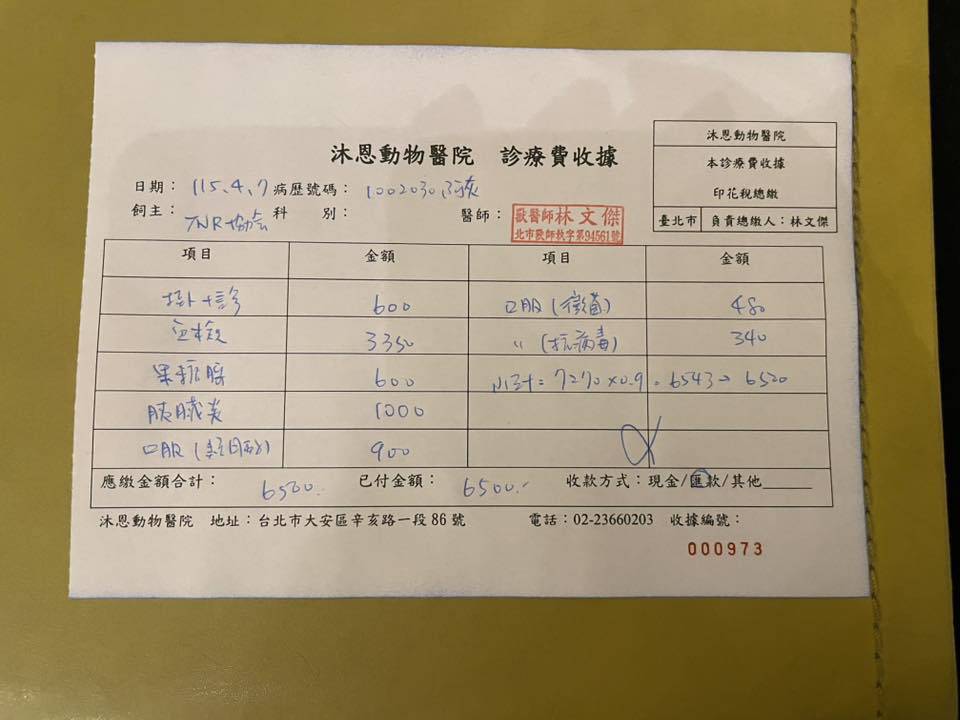 沐恩動物醫院 診療費收據
沐恩動物醫院
本診療費收據
印花稅總繳
臺北市 負責總繳人：林文傑
日期： 115.4.7 病歷號碼： 1002030
飼主： TNR協会 科 別： 醫師： 獸醫師林文傑
北市獸師執字第94561號
項目 金額 項目 金額
掛+診 600 口服(黴菌) 480
3350 〃 (抗病毒) 340
600 小計=7270×0.9=6543→6500
胰臟炎 1000
口服 900
應繳金額合計： 6500.- 已付金額： 6500.- 收款方式：現金/匯款/其他
沐恩動物醫院 地址：台北市大安區辛亥路一段86號 電話：02-23660203 收據編號：
000973